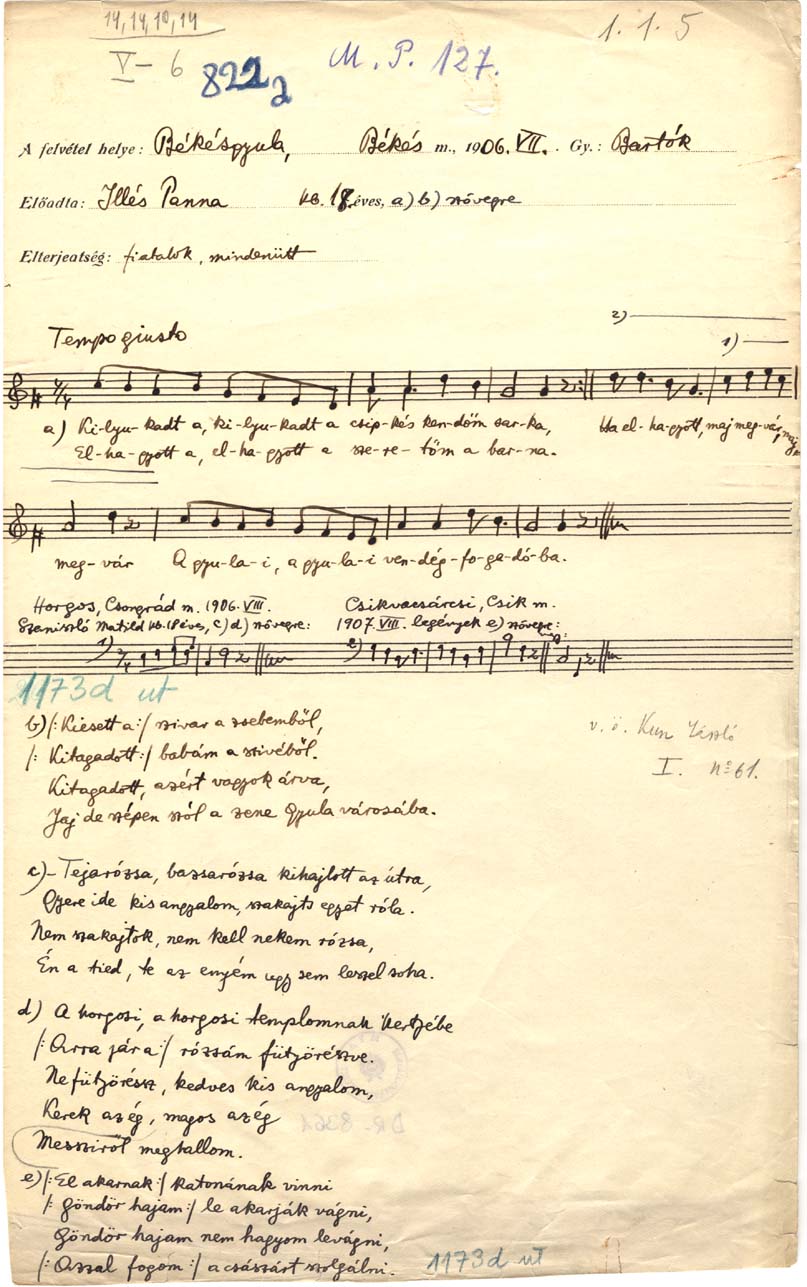 14, 14, 10, 14
1. 1. 5
V – 6
822
M. P. 127.
A felvétel helye: Békésgyula, Békés m., 1906. VII. Gy.: Bartók
Előadta: Illés Panna kb. 18 éves, a) b) szövegre
Elterjedtség: fiatalok, mindenütt
2)
1)
Tempo giusto
a) Ki-lyu-kadt a, ki-lyu-kadt a csip-kés ken-dőm sar-ka, Ha el-ha-gyott, maj meg-vár, maj
El-ha-gyott a, el-ha-gyott a sze-re-tőm a bar-na.
meg-vár A gyu-la-i, a gyu-la-i ven-dég-fo-ga-dó-ba.
Horgos, Csongrád m. 1906. VIII.
Szaniszló Matild kb. 18 éves, c) d) szövegre:
Csikvacsárcsi, Csik m.
1907. VIII. legények e) szövegre:
1173d ut
b) /: Kiesett a :/ szivar a zsebemből,
/: Kitagadott :/ babám a szivéből.
Kitagadott, azért vagyok árva,
Jaj de szépen szól a zene Gyula városába.
v. ö. Kun László
I. № 61.
c) Tejarózsa, bazsarózsa kihajlott az útra,
Gyere ide kis angyalom, szakajts egyet róla.
Nem szakajtok, nem kell nekem rózsa,
Én a tied, te az enyém ugy sem leszel soha.
d) A horgosi, a horgosi templomnak kertjébe
/: Arra jár a :/ rózsám fütyörészve.
Ne fütyöréssz, kedves kis angyalom,
Kerek az ég, magos az ég
Messziről meghallom.
DR. 8361
e) /: El akarnak :/ katonának vinni
/: Göndör hajam :/ le akarják vágni,
Göndör hajam nem hagyom levágni,
/: Azzal fogom :/ a császárt szolgálni.
1173d ut